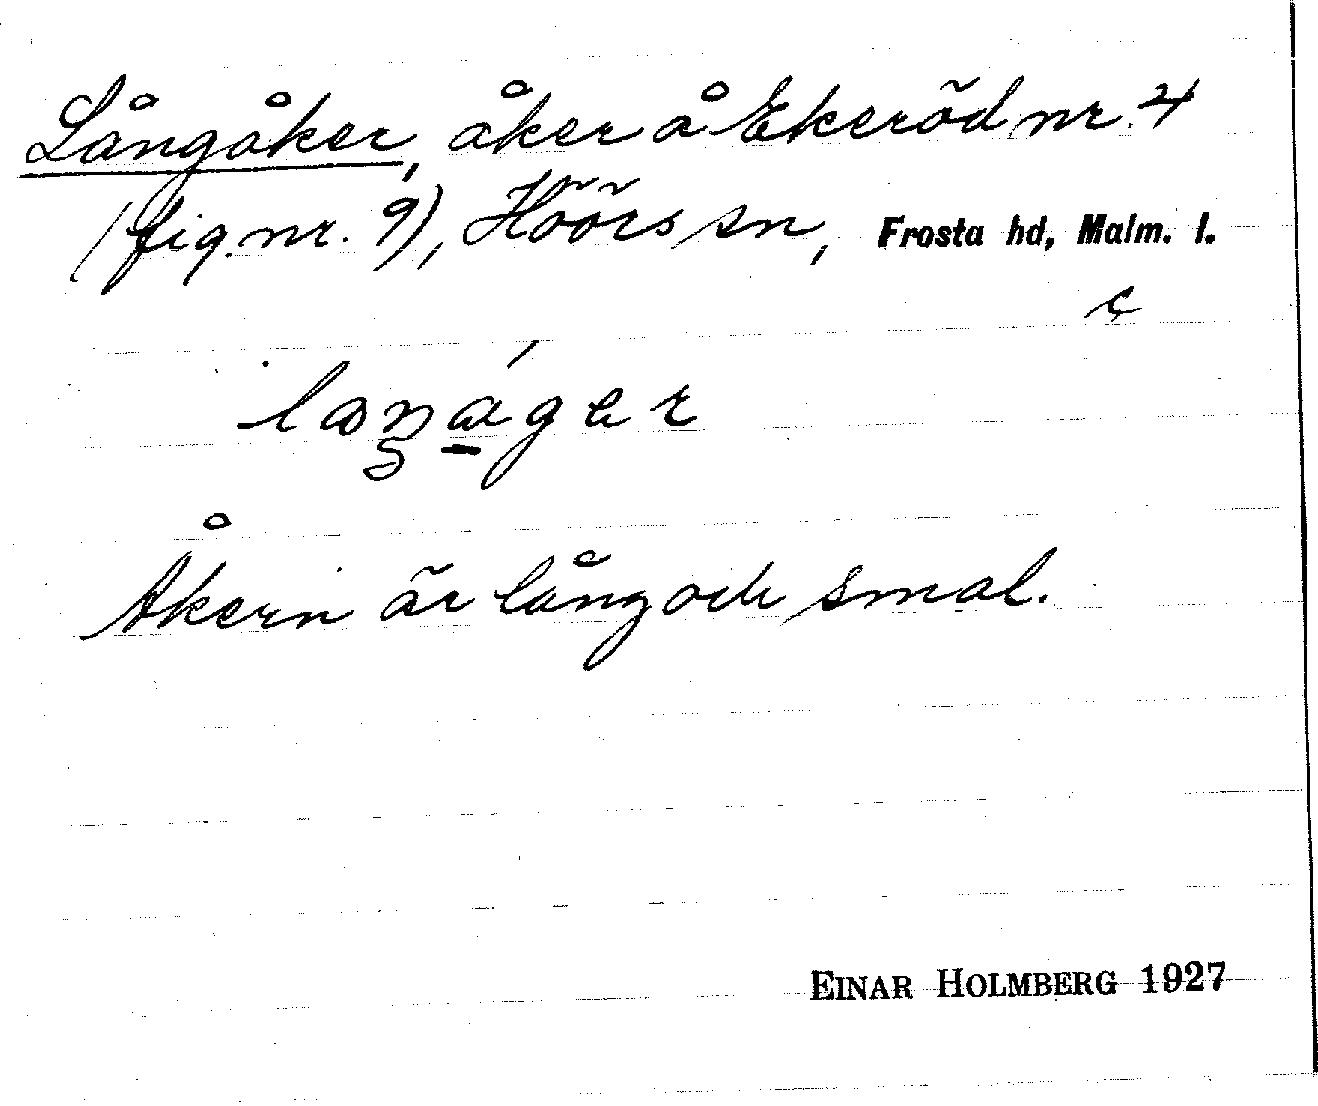 Långåker, åker å Ekeröd nr 4
(fig. nr. 9), Höörs sn, Frosta hd, Malm. l.
c
Åkern är lång och smal.
EINAR HOLMBERG 1927